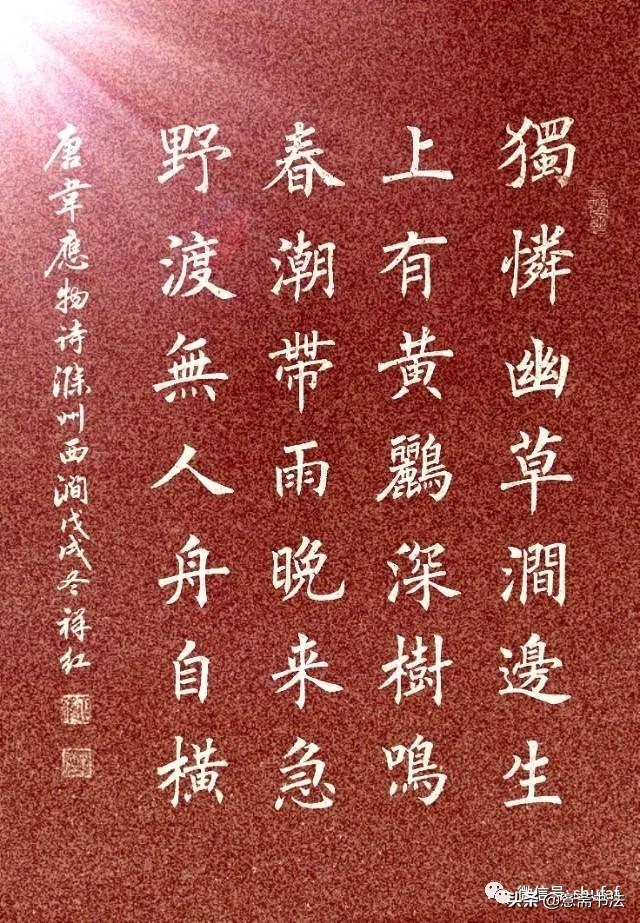 獨憐幽草澗邊生
上有黃鸝深樹鳴
春潮帶雨晚来急
野渡無人舟自横
唐韋應物诗滁州西澗戊戌冬祥红
微信号: shufaf
头条@意斋书法